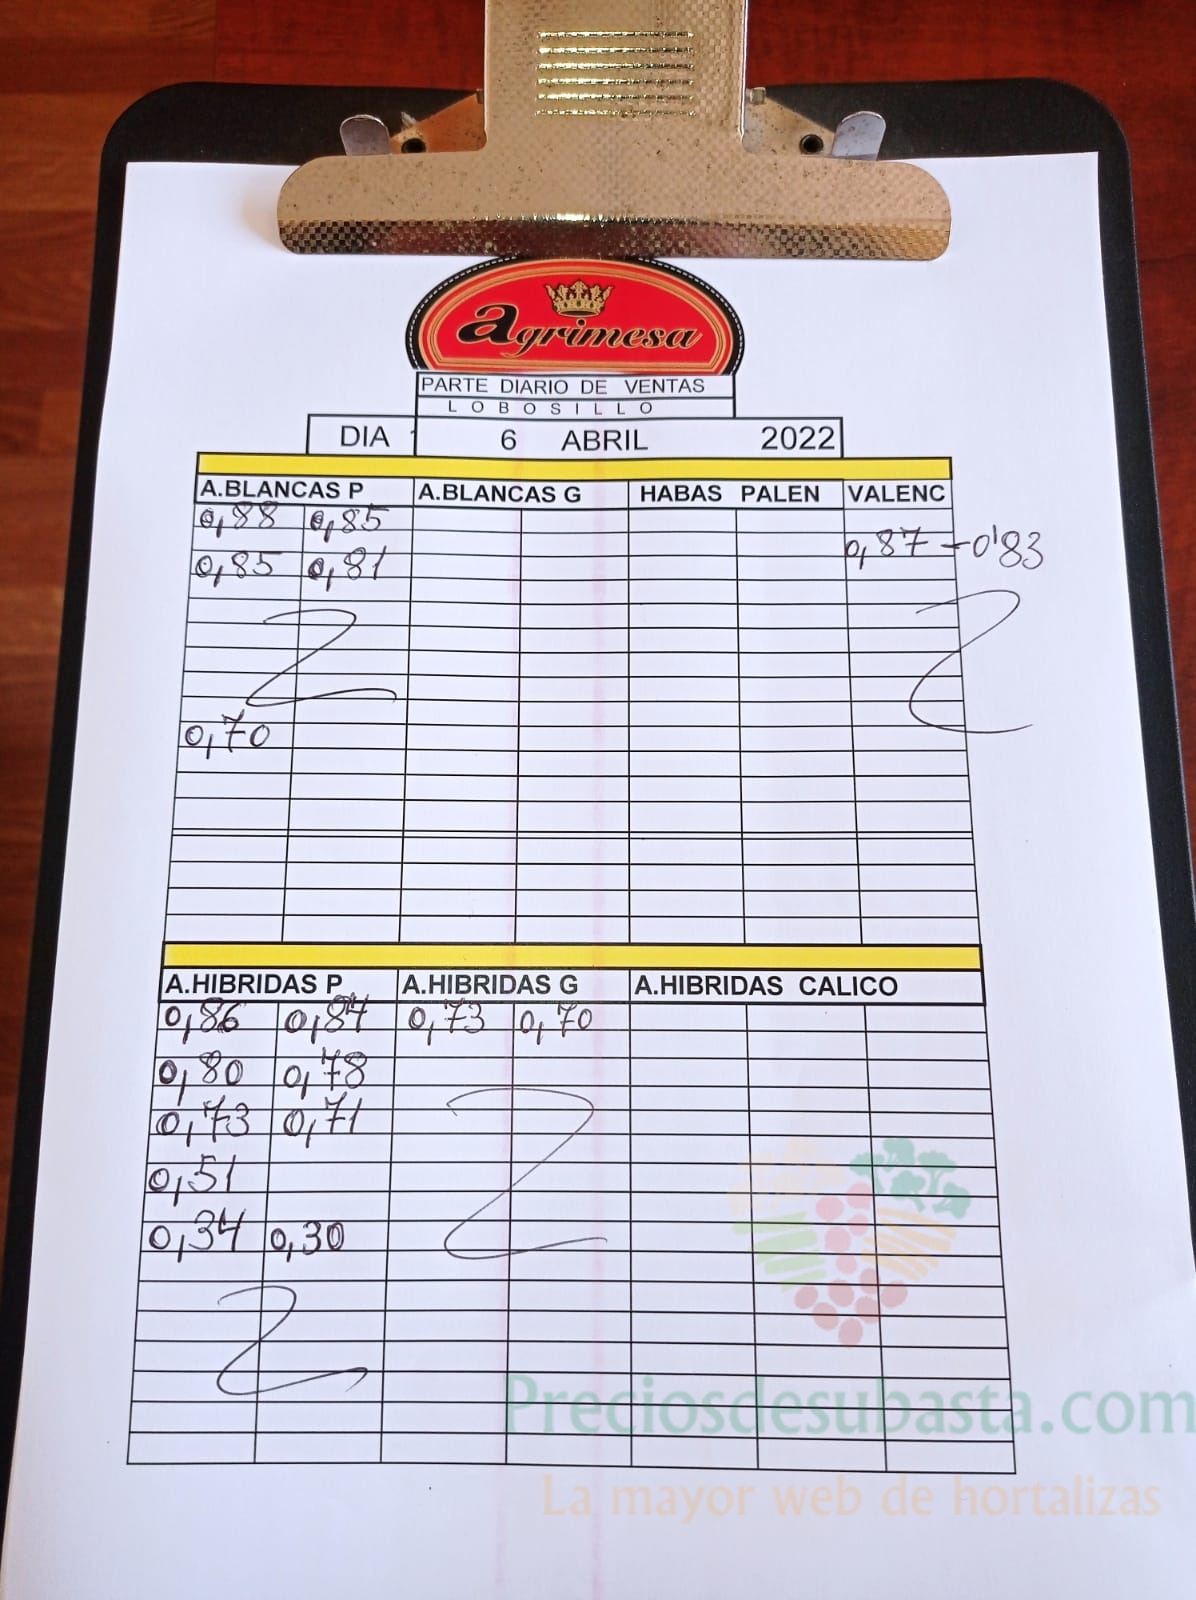 Agrimesa
PARTE DIARIO DE VENTAS
LOBOSILLO
DIA 6 ABRIL 2022
A.BLANCAS P A.BLANCAS G HABAS PALEN VALENC
0,88 0,85
0,87 - 0'83
0,85 0,81
0,70
A.HIBRIDAS P A.HIBRIDAS G A.HIBRIDAS CALICO
0,86 0,84 0,73 0,70
0,80 0,78
0,73 0,71
0,51
0,34 0,30
Preciosdesubasta.com
La mayor web de hortalizas